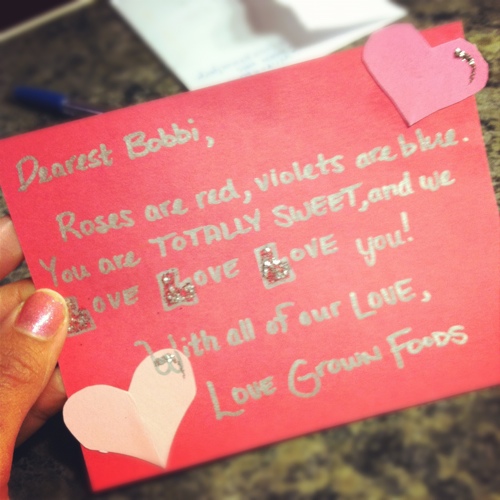 Dearest Bobbi,
Roses are red, violets are blue.
You are TOTALLY SWEET, and we
LOVE LOVE LOVE you!
With all of our LOVE,
LOVE GROWN FOODS